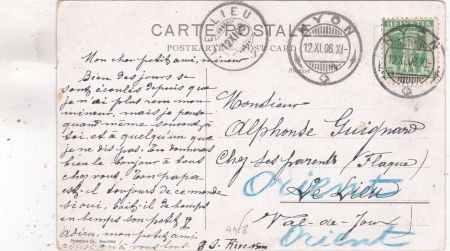 CARTE POSTALE
POSTKARTE POST CARD
NYON
12.XI.08.XI-
HELVETIA
12.XI.08.XI-
Mon cher petit ami, mineur
Bien des jours se
sont écoulés depuis que
je n'ai plus revu mon
mineur, mais je pense
quand même souvent à
toi, et à quelqu'un que
je ne dis pas. Tu donneras
bien le bonjour à tous
chez vous. Ton papa
est-il toujours de ce monde
si oui, boit-il de temps
en temps son petit
Adieu, mon petit ami
ainsi qu'à vous tous.
Monsieur
Alphonse Guignard
Chez ses parents (Flaque)
Le Lieu
(Val-de-Joux)
Orient
Orient